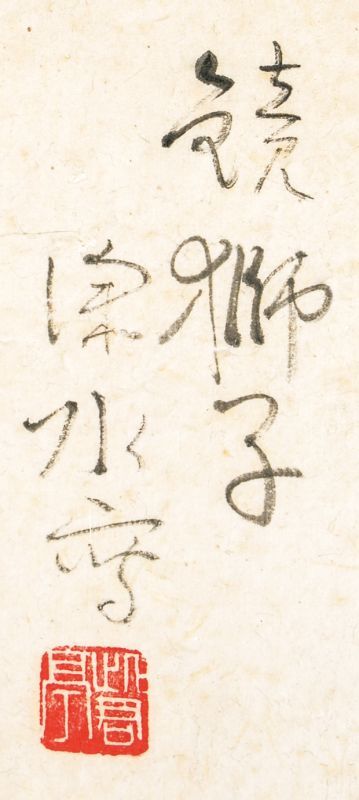 鏡獅子
深水寫